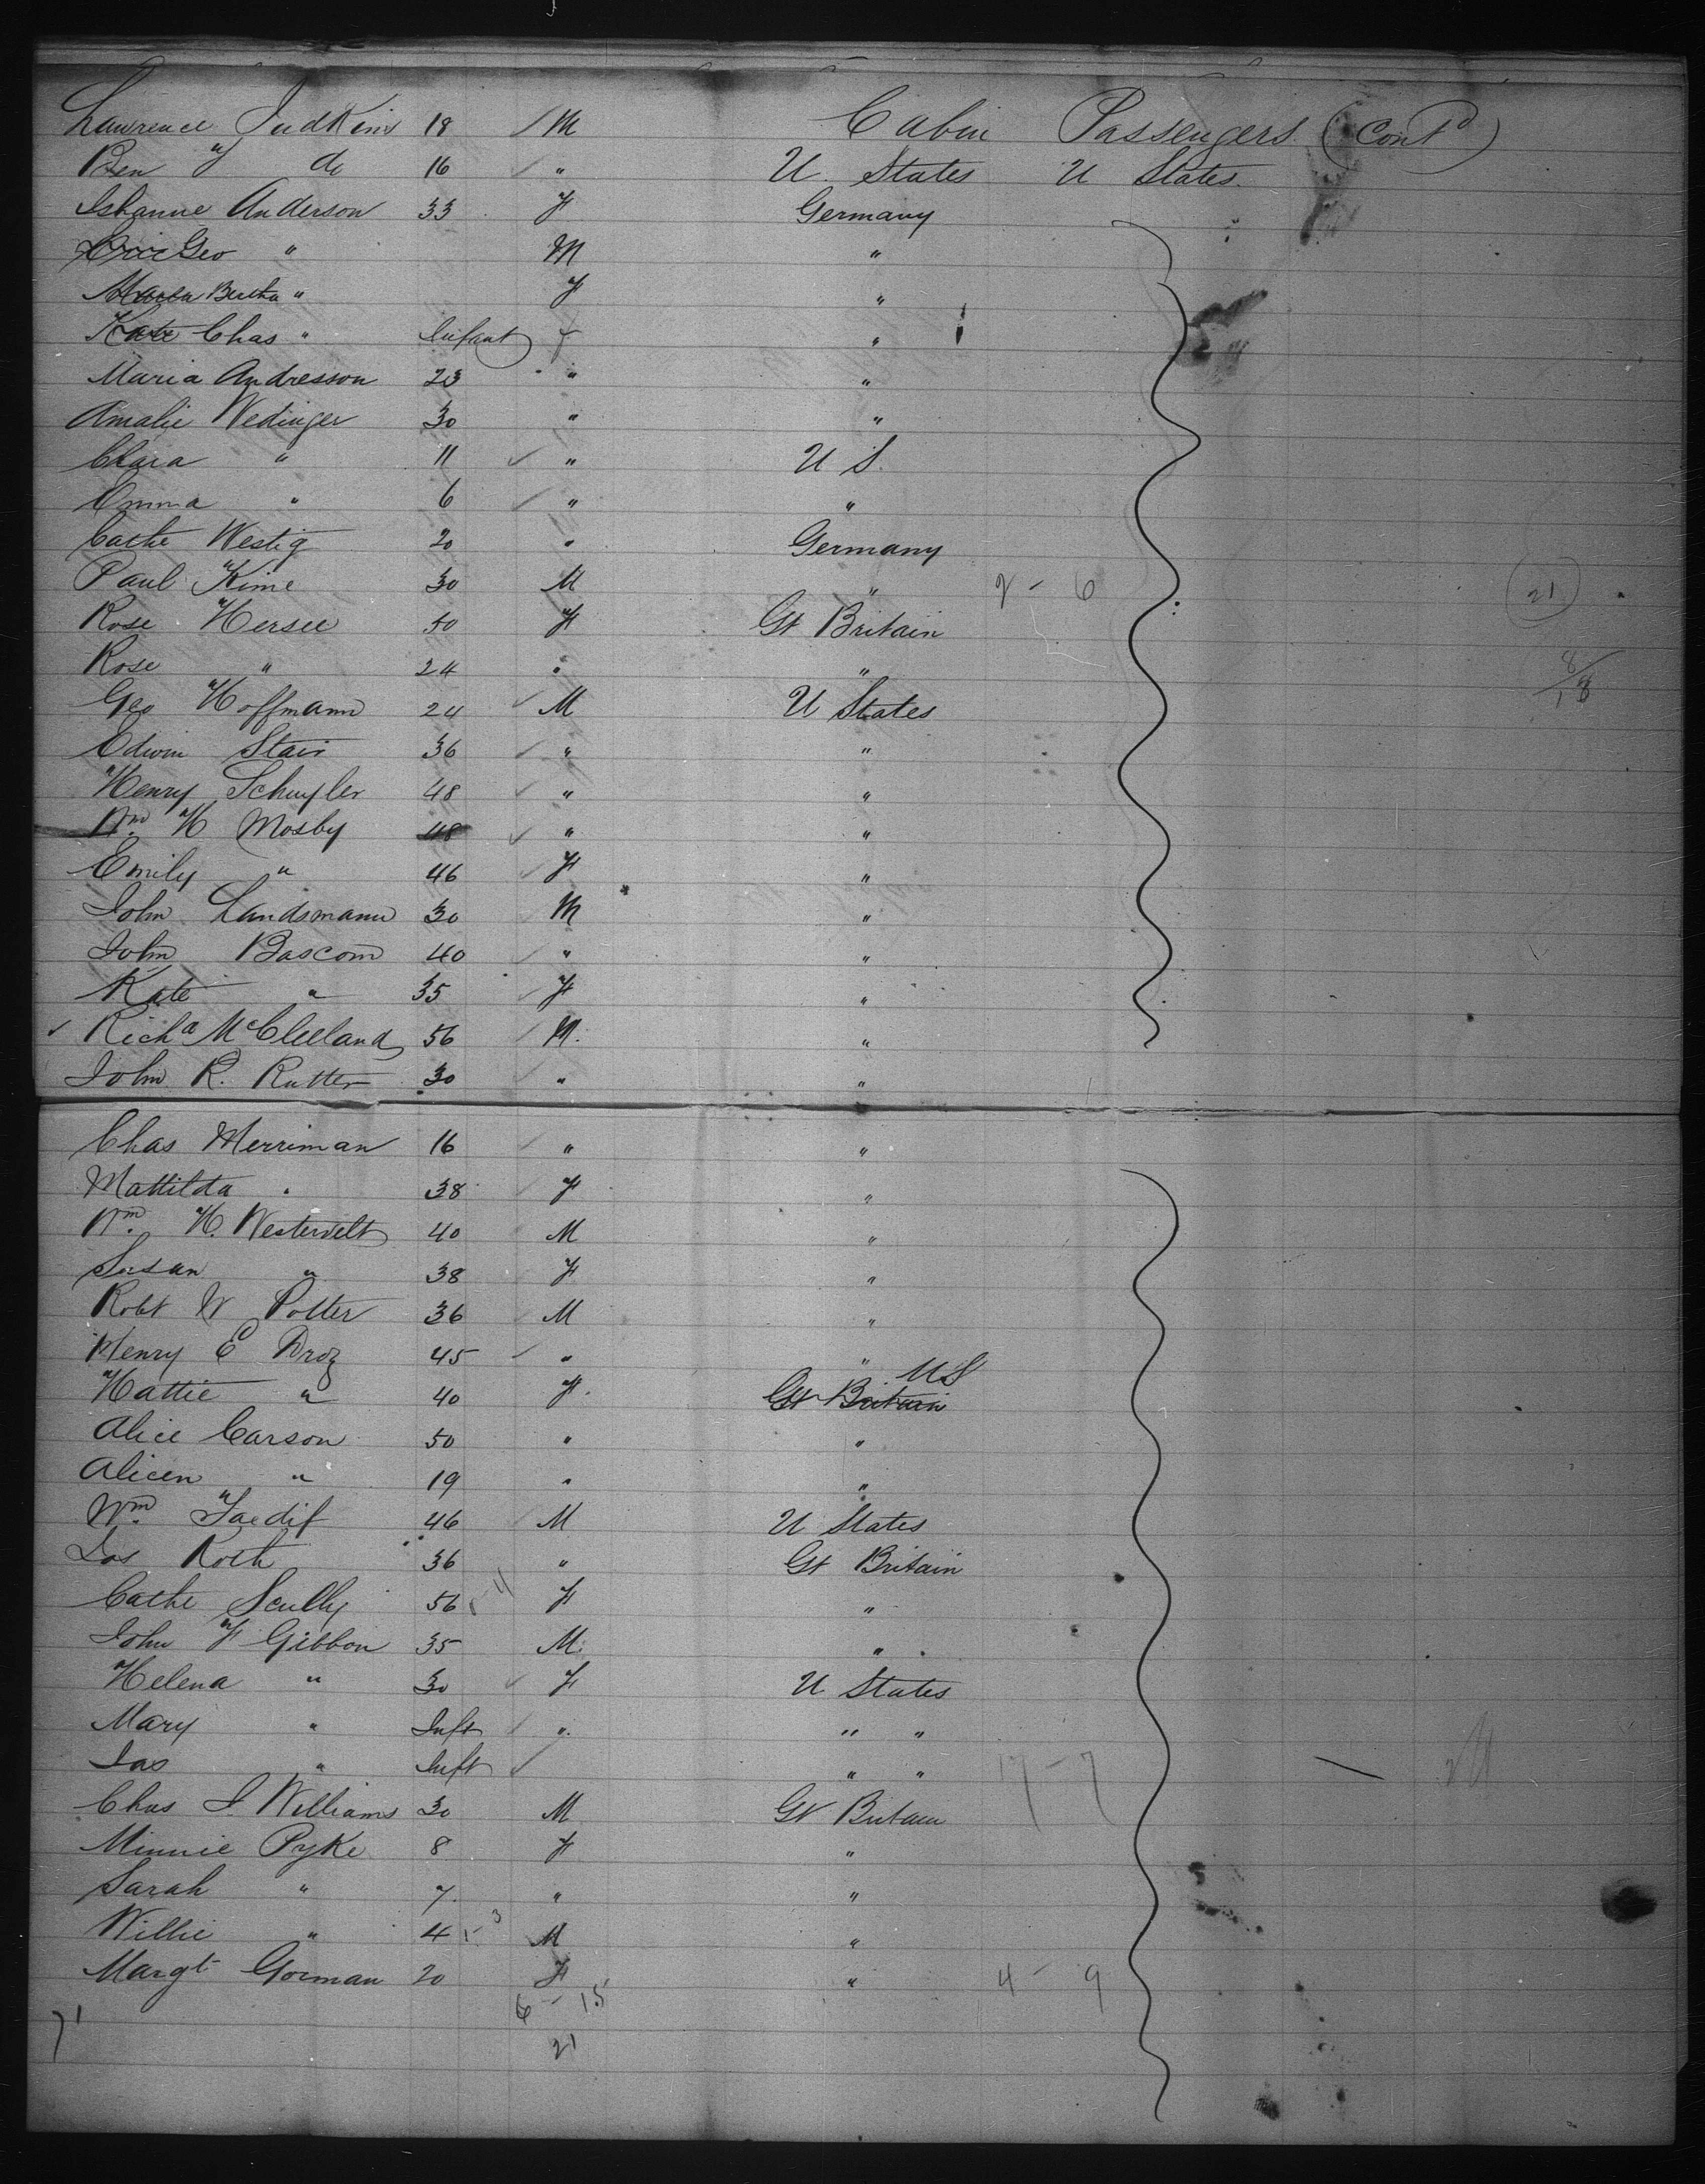 Cabin Passengers (Contd)
Lawrence Judkins 18 ✓ M
Ben F do 16 ✓ " U. States U States.
Ishanne Anderson 33 F Germany
Geo " M "
Bertha " F "
Kate Chas " Infant F "
Maria Andresson 23 " "
Amalie Wedinger 30 " "
Clara " 11 ✓ " U S.
Emma " 6 ✓ " "
Cathe Westig 20 " Germany
Paul Kime 30 M " 2 - 6 21
Rose Hersee 50 F Gt Britain
Rose " 24 " " 8/18
Geo Hoffmann 24 ✓ M U States
Edwin Stair 36 ✓ " "
Henry Schuyler 48 ✓ " "
Wm H Mosby 48 ✓ " "
Emily " 46 ✓ F "
John Landsmann 30 ✓ M "
John Bascom 40 ✓ " "
Kate " 35 ✓ F "
✓ Richd McClelland 56 ✓ M. "
John R. Rutter 30 ✓ " "
Chas Merriman 16 ✓ " "
Mattilda " 38 ✓ F "
Wm H. Westervelt 40 ✓ M "
Susan " 38 ✓ F "
Robt W Potter 36 ✓ M "
Henry E Droz 45 ✓ " "
Hattie " 40 F. Gt Britain U S
Alice Carson 50 " "
Alicen " 19 " "
Wm Tardif 46 ✓ M U States
Jas Roth 36 " Gt Britain
Cathe Scully 56 1-4 F "
John F Gibbon 35 M. "
Helena " 30 ✓ F U States
Mary " Inft ✓ ". " "
Jas " Inft ✓ " " 17 - 7
Chas J. Williams 30 M Gt Britain
Minnie Pyke 8 F "
Sarah " 7. " "
Willie " 4 1-3 M "
Margt Gorman 20 F " 4 - 9
6 - 15
71 21